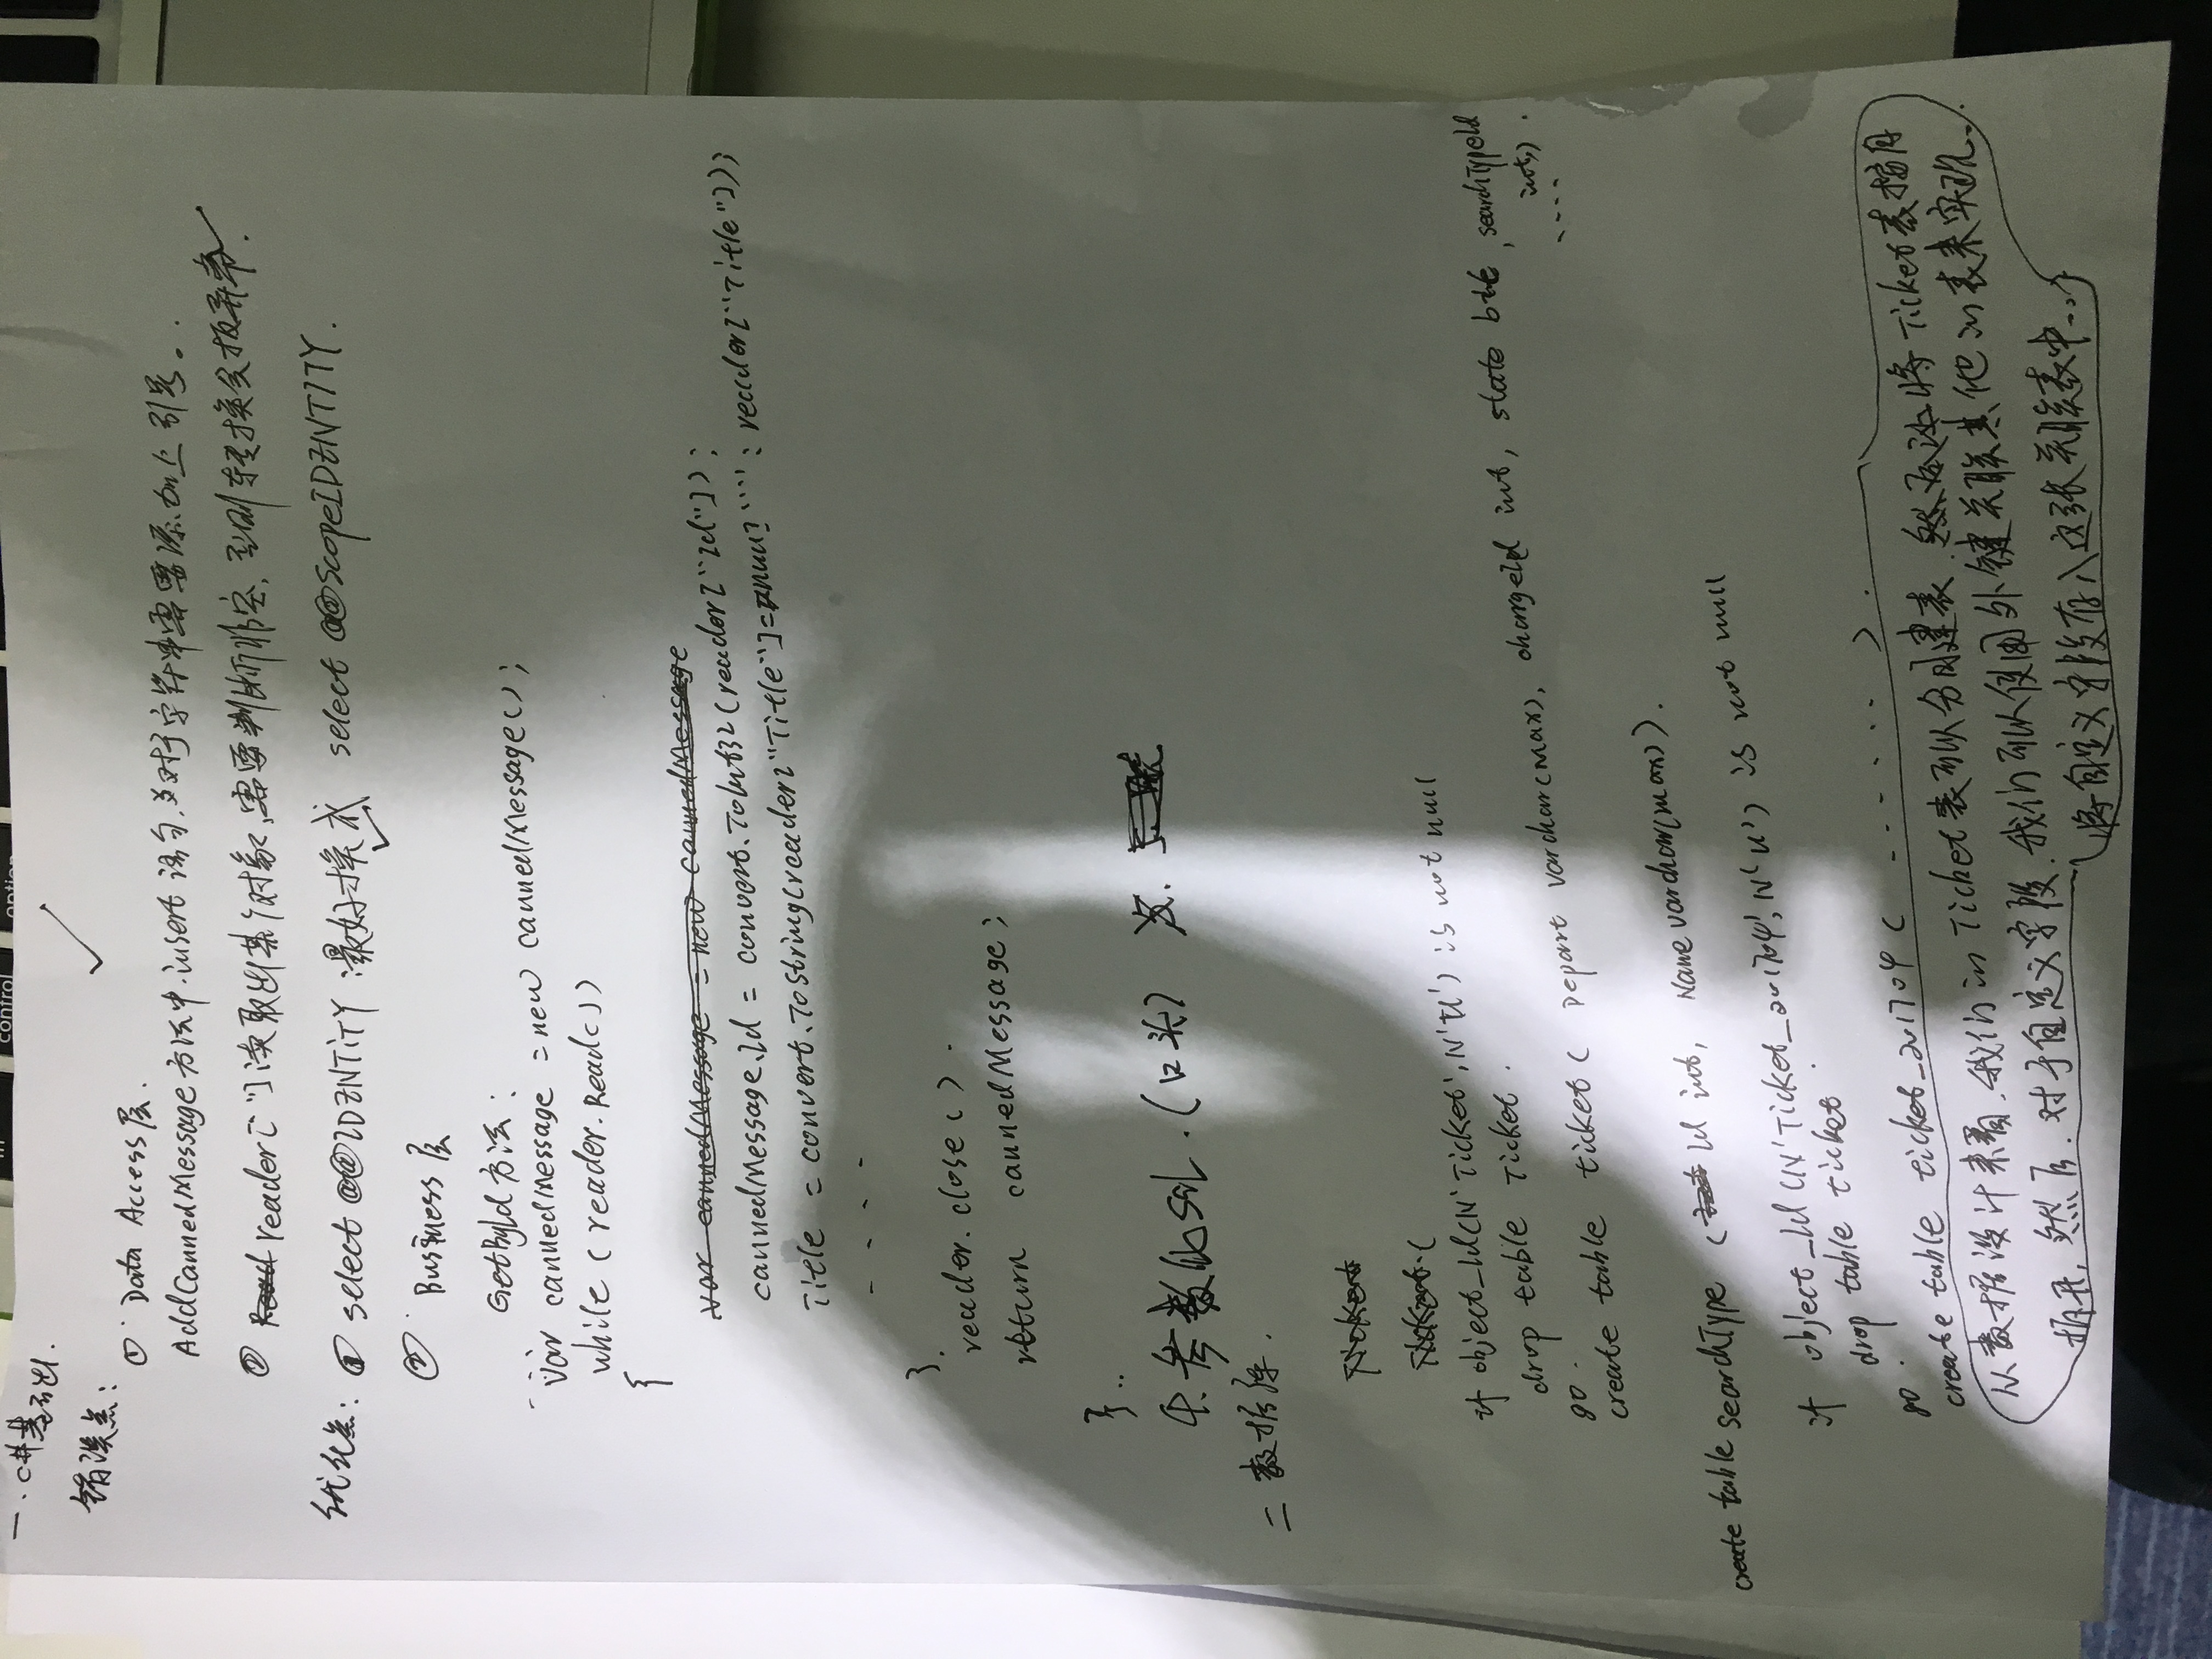 control
option
一. C#基础.
错误点:
① Data Access层.
AddCannedMessage 方法中.insert 语句,对于字符串需要添加上引号。
② reader[""]读取出某个对象,需要判断非空,否则转换会报异常.
优化点: ① select @@IDENTITY 最好换成 select @@ScopeIDENTITY.
② Business 层
GetById 方法:
var cannedMessage = new cannedMessage();
while (reader.Read())
{
var cannedMessage = new cannedMessage
cannedMessage.Id = convert.ToInt32(reader["Id"]);
Title = convert.ToString(reader["Title"]==null?"":reader["Title"]);
....
}.
reader.close().
return cannedMessage;
}..
参数化SQL.(口头)
二 数据库.
Ticket
Ticket.(
if object_Id(N'Ticket',N'U') is not null
drop table Ticket.
go.
create table ticket( Depart varchar(max), changeId int, state bit, searchTypeId
int,).
....
create table searchType ( Id int, Name varchar(max)).
if object_Id(N'Ticket_201704',N'U') is not null
drop table ticket
go.
create table ticket_201704 ( ...... ).
从数据设计来看,我们的Ticket表可以分月建表,然后将Ticket表按月
拆开,然后,对于自定义字段,我们可以使用外键关联其他的表来实现.
将自定义字段存入这张关联表中..